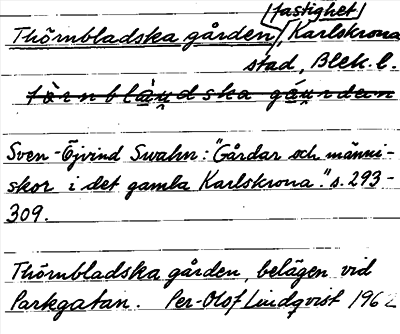 fastighet
Thörnbladska gården, Karlskrona
stad, Blek. l.
törnblàu̯dska gáu̯rden
Sven-Öjvind Swahn: "Gårdar och männi-
skor i det gamla Karlskrona." s. 293-
309.
Thörnbladska gården, belägen vid
Parkgatan. Per-Olof Lindqvist 1962